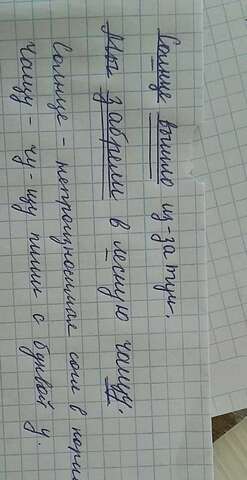 Солнце вышло из-за туч.
Мы забрели в лесную чащу.
Солнце - непроизносимая согл в корне
Чащу - чу-щу пиши с буквой у.